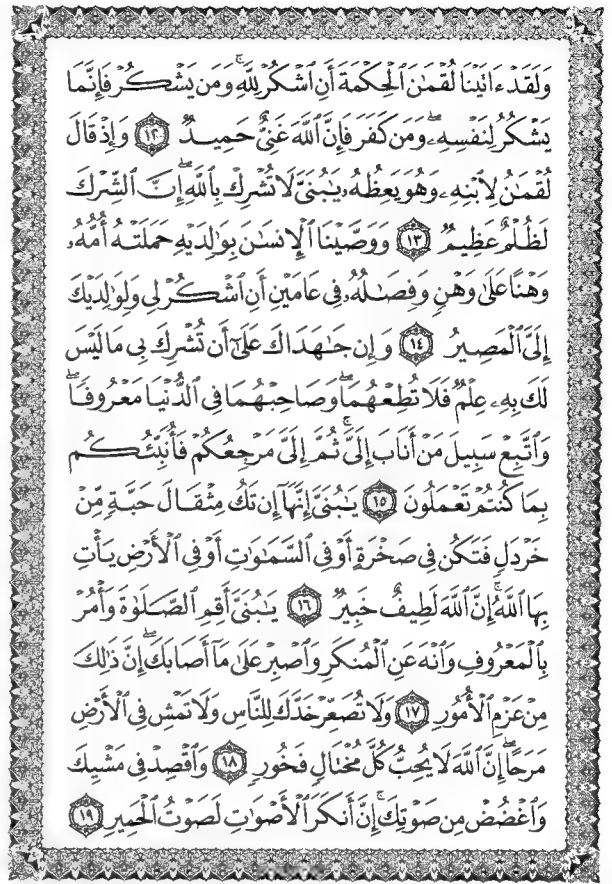 وَلَقَدْ ءَاتَيْنَا لُقْمَٰنَ ٱلْحِكْمَةَ أَنِ ٱشْكُرْ لِلَّهِ ۚ وَمَن يَشْكُرْ فَإِنَّمَا
يَشْكُرُ لِنَفْسِهِۦ ۖ وَمَن كَفَرَ فَإِنَّ ٱللَّهَ غَنِىٌّ حَمِيدٌ ١٢ وَإِذْ قَالَ
لُقْمَٰنُ لِٱبْنِهِۦ وَهُوَ يَعِظُهُۥ يَٰبُنَىَّ لَا تُشْرِكْ بِٱللَّهِ ۖ إِنَّ ٱلشِّرْكَ
لَظُلْمٌ عَظِيمٌ ١٣ وَوَصَّيْنَا ٱلْإِنسَٰنَ بِوَٰلِدَيْهِ حَمَلَتْهُ أُمُّهُۥ
وَهْنًا عَلَىٰ وَهْنٍ وَفِصَٰلُهُۥ فِى عَامَيْنِ أَنِ ٱشْكُرْ لِى وَلِوَٰلِدَيْكَ
إِلَىَّ ٱلْمَصِيرُ ١٤ وَإِن جَٰهَدَاكَ عَلَىٰٓ أَن تُشْرِكَ بِى مَا لَيْسَ
لَكَ بِهِۦ عِلْمٌ فَلَا تُطِعْهُمَا ۖ وَصَاحِبْهُمَا فِى ٱلدُّنْيَا مَعْرُوفًا ۖ
وَٱتَّبِعْ سَبِيلَ مَنْ أَنَابَ إِلَىَّ ۚ ثُمَّ إِلَىَّ مَرْجِعُكُمْ فَأُنَبِّئُكُم
بِمَا كُنتُمْ تَعْمَلُونَ ١٥ يَٰبُنَىَّ إِنَّهَآ إِن تَكُ مِثْقَالَ حَبَّةٍ مِّنْ
خَرْدَلٍ فَتَكُن فِى صَخْرَةٍ أَوْ فِى ٱلسَّمَٰوَٰتِ أَوْ فِى ٱلْأَرْضِ يَأْتِ
بِهَا ٱللَّهُ ۚ إِنَّ ٱللَّهَ لَطِيفٌ خَبِيرٌ ١٦ يَٰبُنَىَّ أَقِمِ ٱلصَّلَوٰةَ وَأْمُرْ
بِٱلْمَعْرُوفِ وَٱنْهَ عَنِ ٱلْمُنكَرِ وَٱصْبِرْ عَلَىٰ مَآ أَصَابَكَ ۖ إِنَّ ذَٰلِكَ
مِنْ عَزْمِ ٱلْأُمُورِ ١٧ وَلَا تُصَعِّرْ خَدَّكَ لِلنَّاسِ وَلَا تَمْشِ فِى ٱلْأَرْضِ
مَرَحًا ۖ إِنَّ ٱللَّهَ لَا يُحِبُّ كُلَّ مُخْتَالٍ فَخُورٍ ١٨ وَٱقْصِدْ فِى مَشْيِكَ
وَٱغْضُضْ مِن صَوْتِكَ ۚ إِنَّ أَنكَرَ ٱلْأَصْوَٰتِ لَصَوْتُ ٱلْحَمِيرِ ١٩